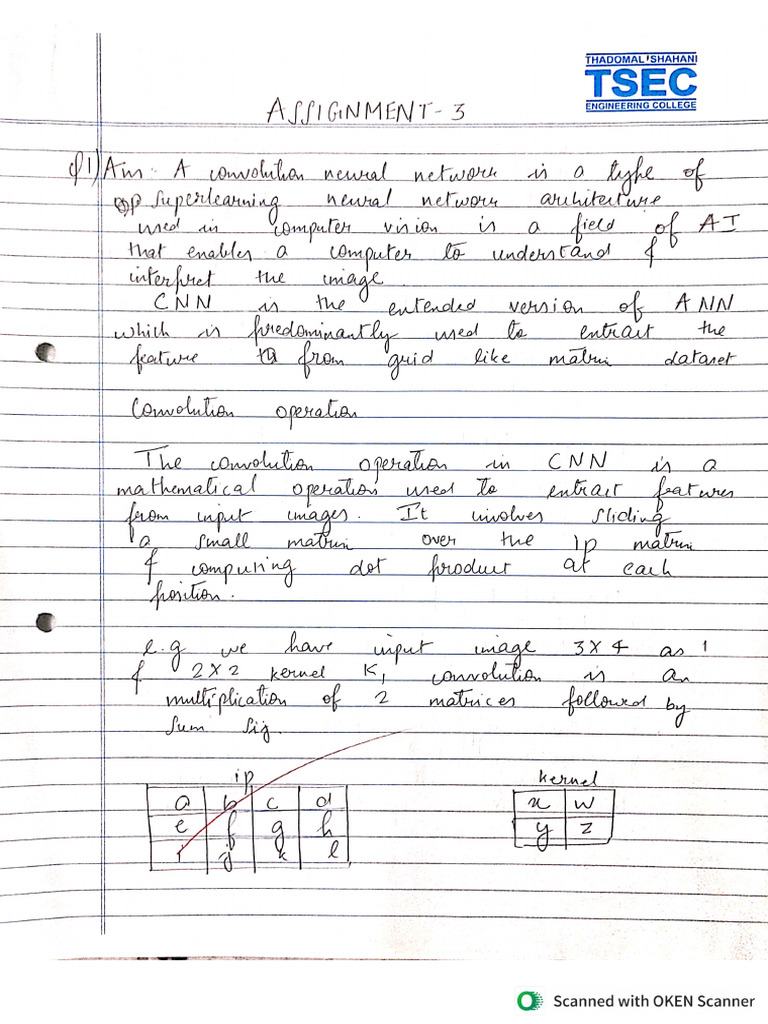 THADOMAL SHAHANI
TSEC
ENGINEERING COLLEGE
ASSIGNMENT - 3
Q1) Ans: A convolution neural network is a type of
superlearning neural network architecture
used in computer vision is a field of AI
that enables a computer to understand &
interpret the image
CNN is the extended version of ANN
which is predominantly used to extract the
feature from grid like matrix dataset
Convolution operation
The convolution operation in CNN is a
mathematical operation used to extract features
from input images. It involves sliding
a small matrix over the ip matrix
& computing dot product at each
position.
e.g we have input image 3X4 as I
& 2X2 kernel K, convolution is an
multiplication of 2 matrices followed by
sum
ip kernel
a b c d x w
e f g h y z
i j k l
Scanned with OKEN Scanner